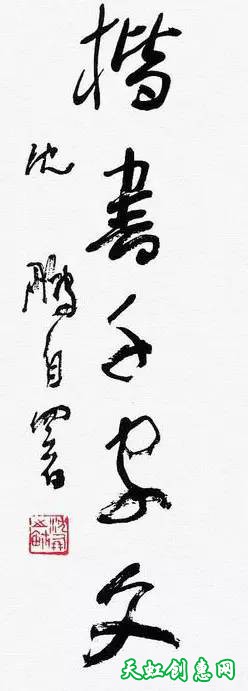 楷書千字文
沈鹏自署
天虹创意网